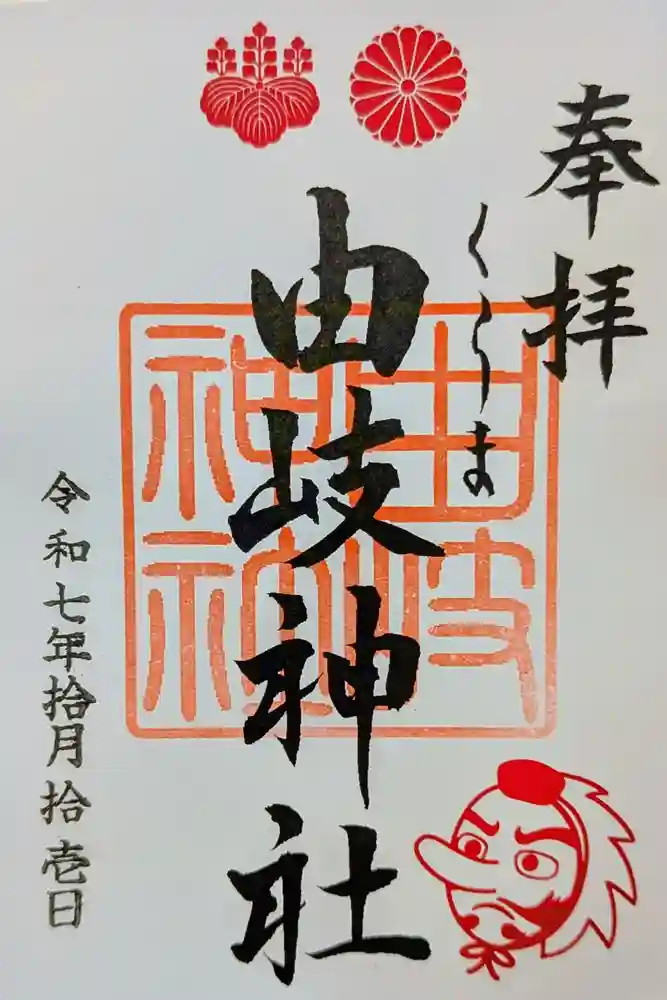 奉拝
くらま
由岐神社
由岐神社
令和七年拾月拾壱日